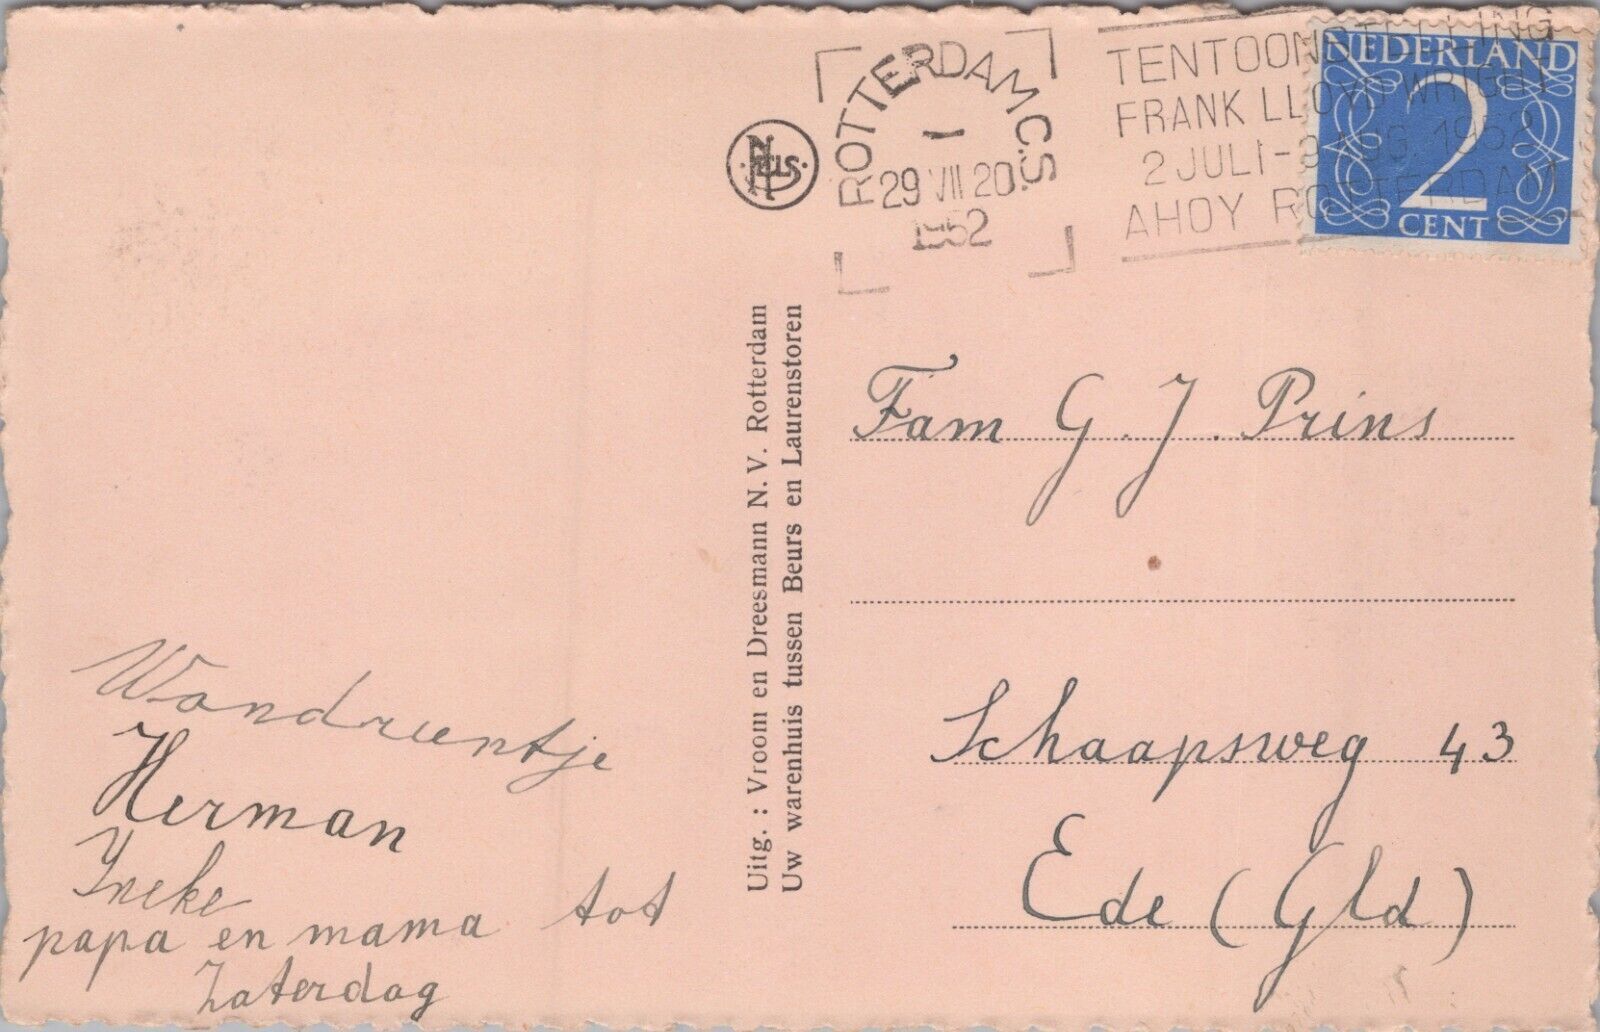 ROTTERDAM C.S.
1
29 VII 20
1952
TENTOONSTELLING
FRANK LLOYD WRIGHT
2 JULI - 9 AUG. 1952
AHOY ROTTERDAM
NEDERLAND
2
CENT
NELS
Uitg. : Vroom en Dreesmann N. V. Rotterdam
Uw warenhuis tussen Beurs en Laurenstoren
Fam G. J. Prins
Schaapsweg 43
Ede (Gld)
Herman
Yneke
papa en mama tot
Zaterdag